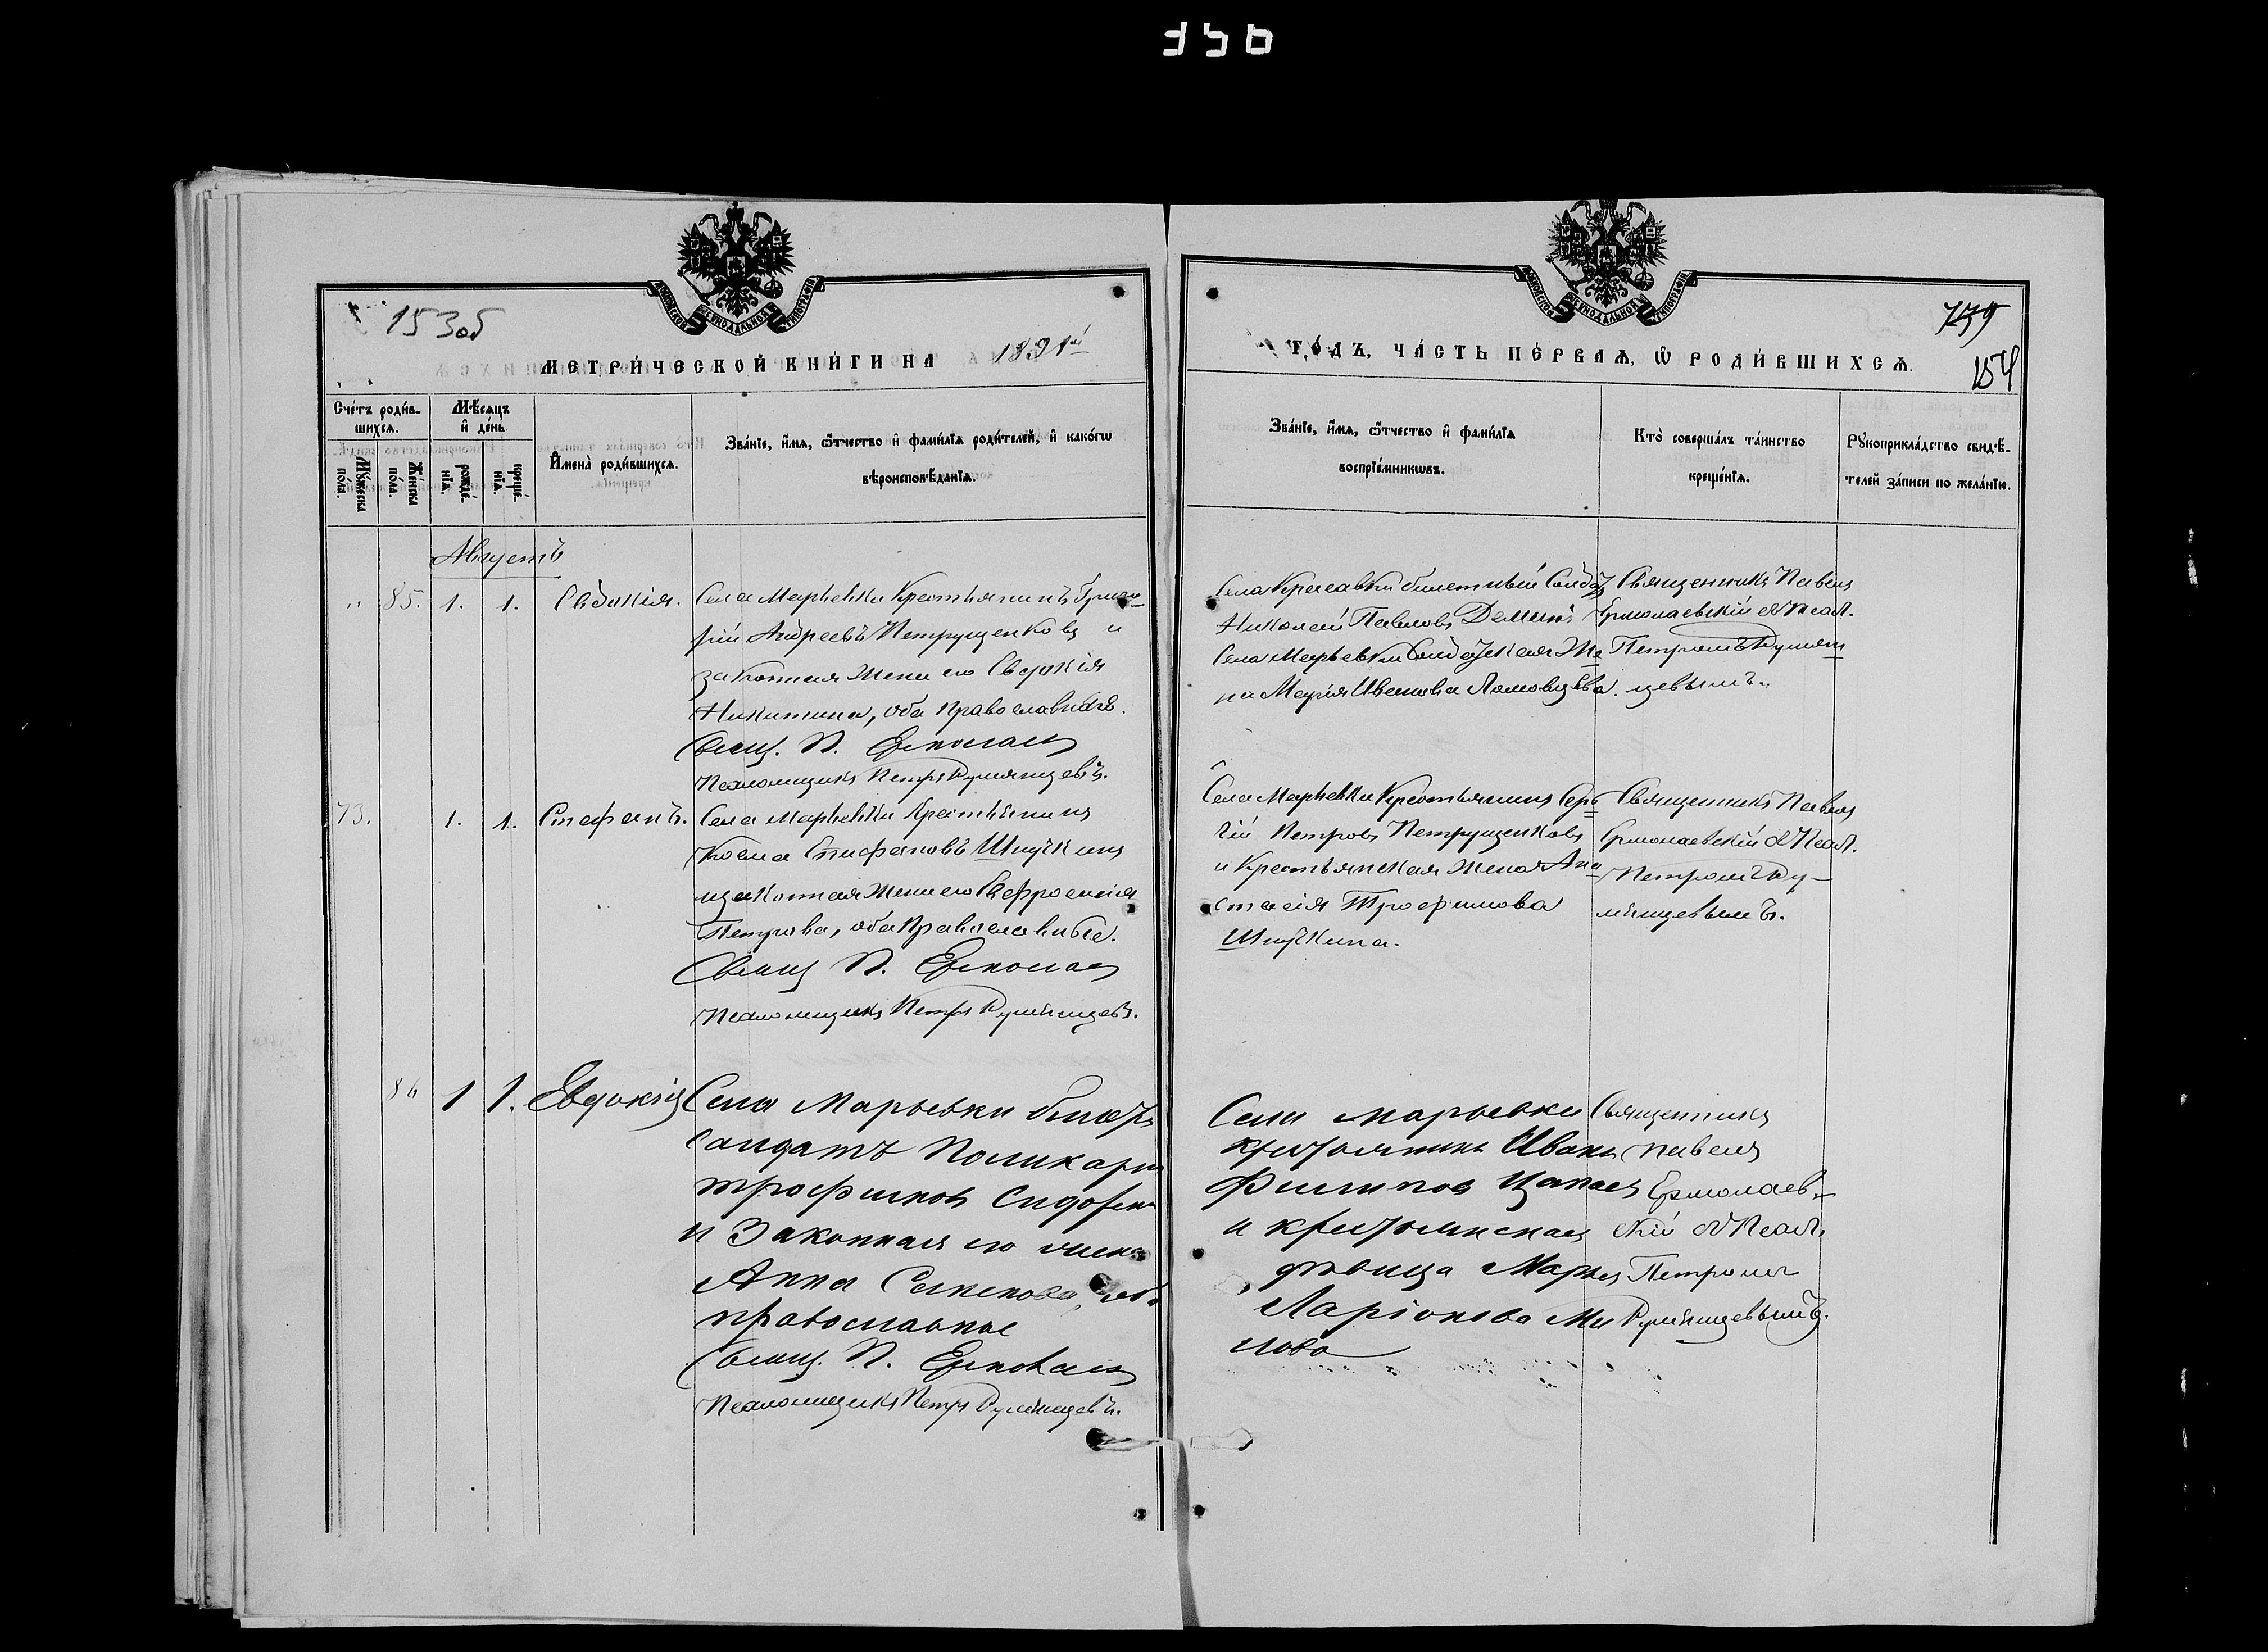 153об
МЕТРИЧЕСКОЙ КНИГИ НА 1891й
ГОДЪ, ЧАСТЬ ПЕРВАЯ, Ѡ РОДИВШИХСЯ.
739
154
Счетъ родив-
шихся.
Мужеска пола.
Женска пола.
Мѣсяцъ
и день
рожде-
нія.
креще-
нія.
Имена родившихся.
Званіе, имя, ѿтчество и фамилія родителей, и какогѡ
вѣроисповѣданія.
Званіе, имя, ѿтчество и фамилія
воспріемникѡвъ.
Кто совершалъ таинство
крещенія.
Рукоприкладство свидѣ-
телей записи по желанію.
Августъ
„ 85. 1. 1. Евдокія.
Села Марьевки Крестьянинъ
Андреевъ Петрущенковъ и
законная жена его Евдокія
Никитина, оба православные.
Свящ. П. Ермолаев
Псаломщикъ Петръ Румянцевъ.
Села Красавки билетный Солдатъ
Николай Павловъ Деминъ
Села Марьевки Солдатская Же
на Марія Иванова Ломовцева.
Священникъ Павелъ
Ермолаевскій съ Псал.
Петромъ Румян
цевымъ.
73. 1. 1. Стефанъ.
Села Марьевки Крестьянинъ
Косма Стефановъ Шпучкинъ
законная жена его Евфросинія
Петрова, оба Православные.
Свящ П. Ермолаев
Псаломщикъ Петръ Румянцевъ.
Села Марьевки Крестьянинъ Сер
гій Петровъ Петрущенковъ
и Крестьянская жена Ана
стасія Трофимова
Шпучкина.
Священникъ Павелъ
Ермолаевскій съ Псал.
Петромъ Ру-
мянцевымъ.
86 1 1. Евдокія
Села Марьевки билет
солдатъ Поликарп
Трофимов Сидорен
и Законная его жена
Анна Семенова, об
православные
Свящ. П. Ермолаев
Псаломщикъ Петръ Румянцевъ.
Села Марьевки
крестьянинъ Иванъ
Филипов Цапаев
и крестьянская
дѣвица Марья
Ларіонова Ми
лова
Священникъ
Павелъ
Ермолаев-
скій съ Псал.
Петромъ
Румянцевымъ.